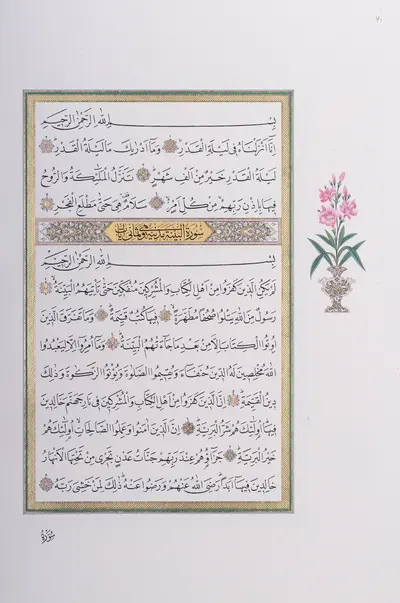 ٧٠
بِسْمِ اللهِ الرَّحْمٰنِ الرَّحٖيمِ
اِنَّٓا اَنْزَلْنَاهُ فٖى لَيْلَةِ الْقَدْرِ وَمَٓا اَدْرٰيكَ مَا لَيْلَةُ الْقَدْرِ
لَيْلَةُ الْقَدْرِ خَيْرٌ مِنْ اَلْفِ شَهْرٍ تَنَزَّلُ الْمَلٰٓئِكَةُ وَالرُّوحُ
فٖيهَا بِاِذْنِ رَبِّهِمْ مِنْ كُلِّ اَمْرٍ سَلَامٌ هِىَ حَتّٰى مَطْلَعِ الْفَجْرِ
سُورَةُ الْبَيِّنَةِ مَدَنِيَّةٌ وَهِيَ ثَمَانِي اٰيَاتٍ
بِسْمِ اللهِ الرَّحْمٰنِ الرَّحٖيمِ
لَمْ يَكُنِ الَّذٖينَ كَفَرُوا مِنْ اَهْلِ الْكِتَابِ وَالْمُشْرِكٖينَ مُنْفَكّٖينَ حَتّٰى تَأْتِيَهُمُ الْبَيِّنَةُ
رَسُولٌ مِنَ اللهِ يَتْلُوا صُحُفًا مُطَهَّرَةً فٖيهَا كُتُبٌ قَيِّمَةٌ وَمَا تَفَرَّقَ الَّذٖينَ
اُوتُوا الْكِتَابَ اِلَّا مِنْ بَعْدِ مَا جَٓاءَتْهُمُ الْبَيِّنَةُ وَمَٓا اُمِرُٓوا اِلَّا لِيَعْبُدُوا
اللهَ مُخْلِصٖينَ لَهُ الدّٖينَ حُنَفَٓاءَ وَيُقٖيمُوا الصَّلٰوةَ وَيُؤْتُوا الزَّكٰوةَ وَذٰلِكَ
دٖينُ الْقَيِّمَةِ اِنَّ الَّذٖينَ كَفَرُوا مِنْ اَهْلِ الْكِتَابِ وَالْمُشْرِكٖينَ فٖى نَارِ جَهَنَّمَ خَالِدٖينَ
فٖيهَا اُولٰٓئِكَ هُمْ شَرُّ الْبَرِيَّةِ اِنَّ الَّذٖينَ اٰمَنُوا وَعَمِلُوا الصَّالِحَاتِ اُولٰٓئِكَ هُمْ
خَيْرُ الْبَرِيَّةِ جَزَٓاؤُهُمْ عِنْدَ رَبِّهِمْ جَنَّاتُ عَدْنٍ تَجْرٖى مِنْ تَحْتِهَا الْاَنْهَارُ
خَالِدٖينَ فٖيهَٓا اَبَدًا رَضِىَ اللهُ عَنْهُمْ وَرَضُوا عَنْهُ ذٰلِكَ لِمَنْ خَشِىَ رَبَّهُ
سُورَةُ